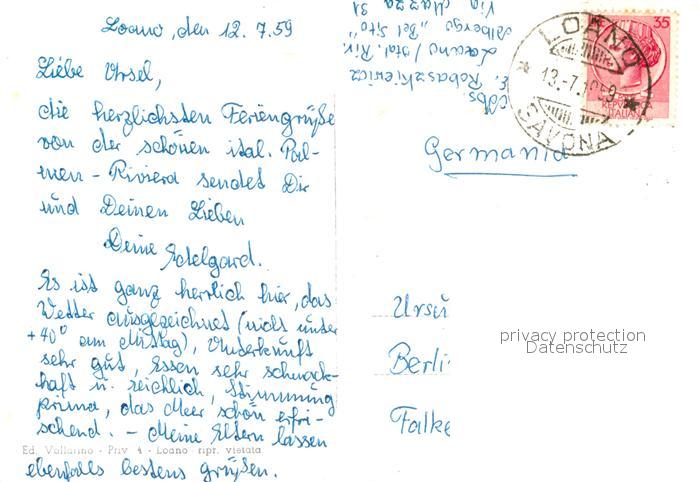 Loano, den 12. 7. 59
Liebe Ursel,
die herzlichsten Feriengrüße
von der schönen ital. Pal-
men - Riviera sendet Dir
und Deinen Lieben
Deine Edelgard.
Es ist ganz herrlich hier, das
Wetter ausgezeichnet (nicht unter
+40° am Mittag), Unterkunft
sehr gut, Essen sehr schmack-
haft u. reichlich, Stimmung
prima, das Meer schön erfri-
schend. - Meine Eltern lassen
ebenfalls bestens grüßen.
Ed. Vallarino - Priv 4 - Loano - ripr. vietata
Abs.
E. Robaszkiewicz
Loano / ital. Riv.
Albergo "Bel Sito"
Via Mazza 31
LOANO
13.-7.1959
SAVONA
35
ITALIANA
Germania
Ursu
Berli
Falke
privacy protection
Datenschutz